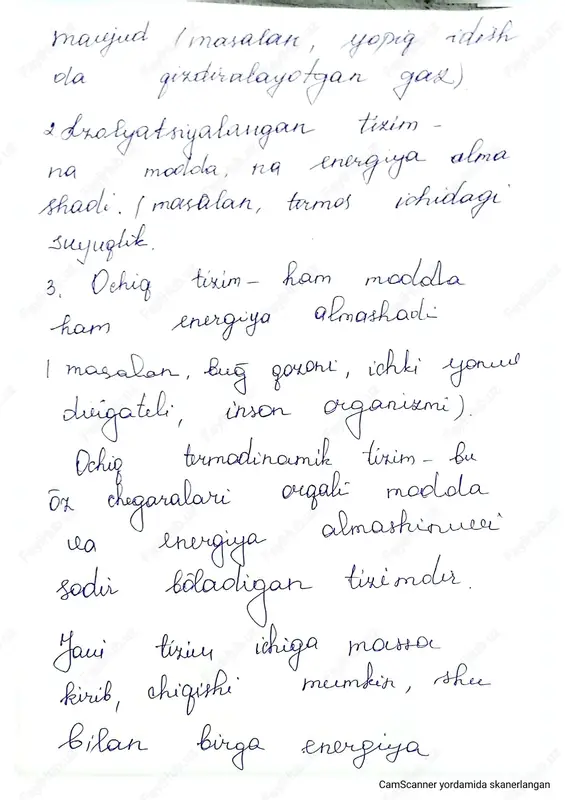 mavjud (masalan, yopiq idish
da qizdiralayotgan gaz)
2 Izolyatsiyalangan tizim -
na modda, na energiya alma
shadi. (masalan, termos ichidagi
suyuqlik.
3. Ochiq tizim - ham modda
ham energiya almashadi
(masalan, bug' qozoni, ichki yonuv
dvigateli, inson organizmi).
Ochiq termodinamik tizim - bu
o'z chegaralari orqali modda
va energiya almashinuvi
sodir bo'ladigan tizimdir.
Yani tizim ichiga massa
kirib, chiqishi mumkin, shu
bilan birga energiya
CamScanner yordamida skanerlangan